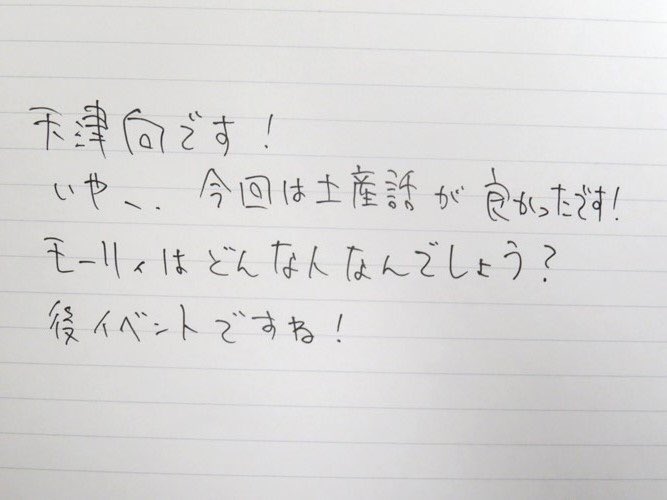 天津向です！
いや、、今回は土産話が良かったです！
モーリィはどんな人なんでしょう？
後イベントですね！